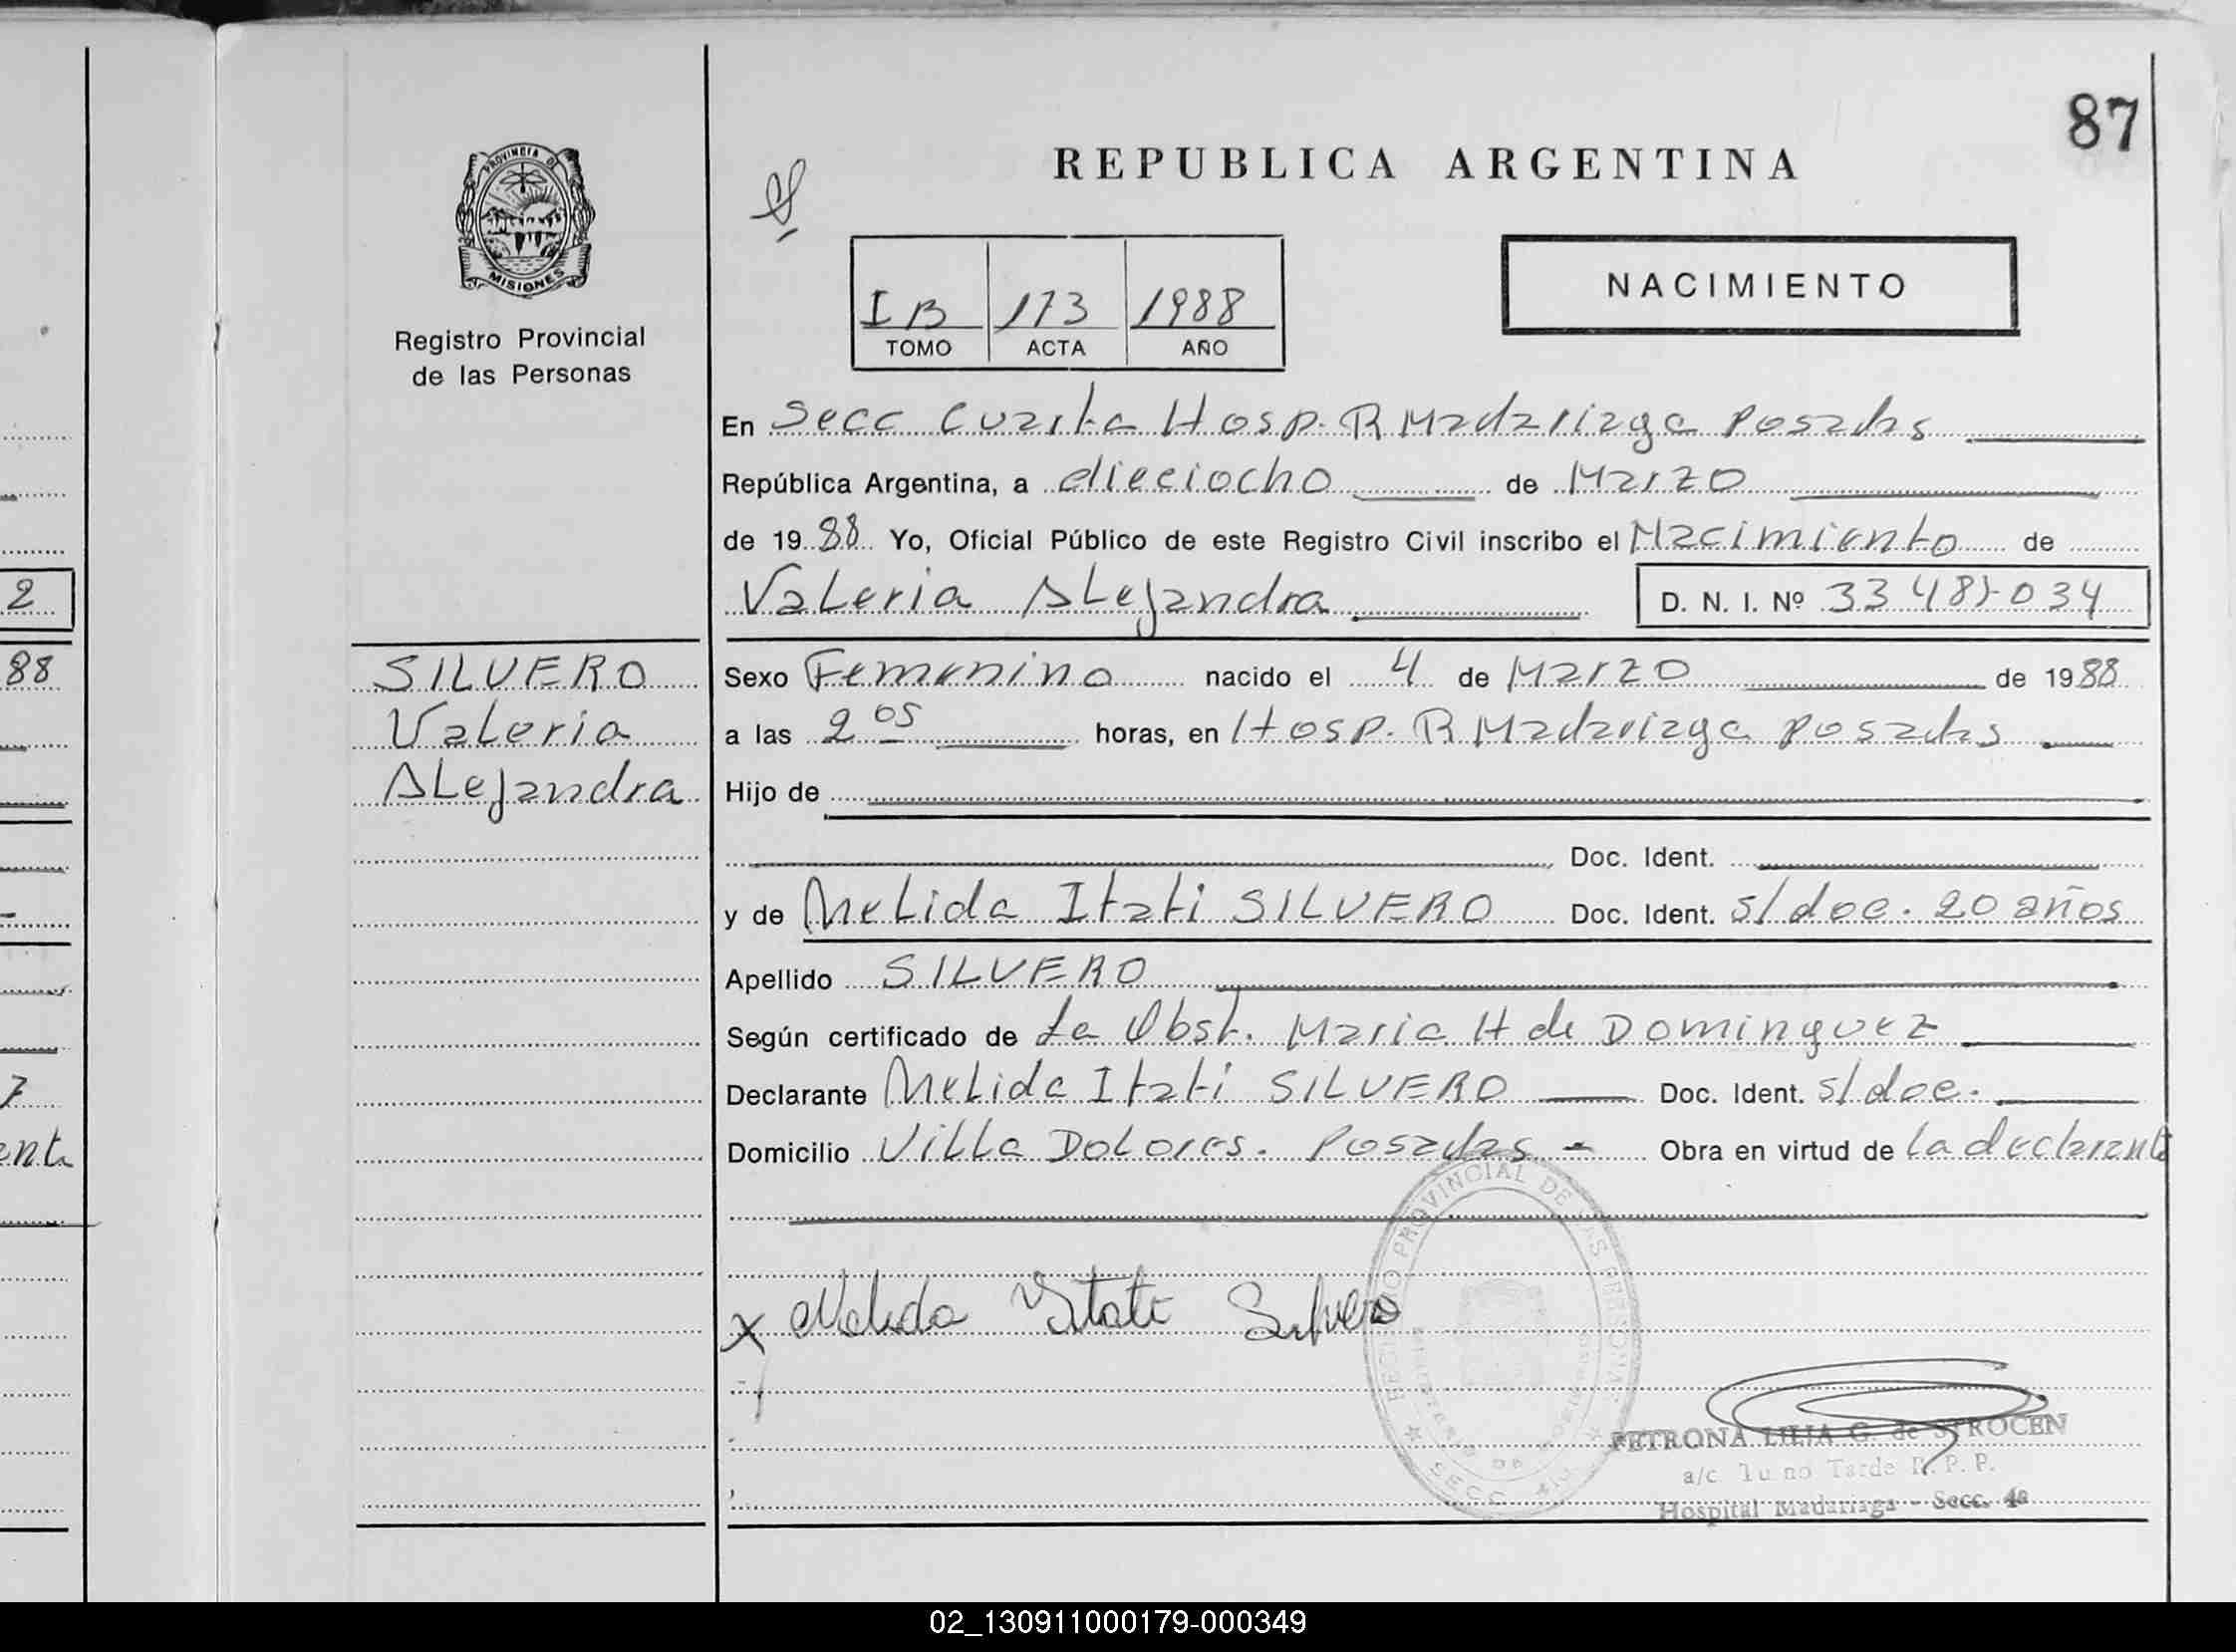 2
88
7
ente
PROVINCIA DE
MISIONES
Registro Provincial
de las Personas
SILVERO
Valeria
Alejandra
87
REPUBLICA ARGENTINA
NACIMIENTO
I B 173 1988
TOMO ACTA AÑO
En Secc Cuarta Hosp. R Madariaga Posadas
República Argentina, a dieciocho de Marzo
de 1988 Yo, Oficial Público de este Registro Civil inscribo el Nacimiento de
Valeria Alejandra D. N. I. Nº
Sexo Femenino nacido el 4 de Marzo de 1988
a las 2 05 horas, en Hosp. R Madariaga Posadas
Hijo de
Doc. Ident.
y de Nelida Itati SILVERO Doc. Ident. s/doc. 20 años
Apellido SILVERO
Según certificado de La Obst. Maria H de Dominguez
Declarante Nelida Itati SILVERO Doc. Ident. s/doc.
Domicilio Villa Dolores. Posadas - Obra en virtud de la declarante
x Nelida Itati Silvero
REGISTRO PROVINCIAL DE LAS PERSONAS
SECC
PETRONA LILIA G. de STROCEN
a/c Turno Tarde R. P. P.
Hospital Madariaga - Secc. 4a
02_130911000179-000349